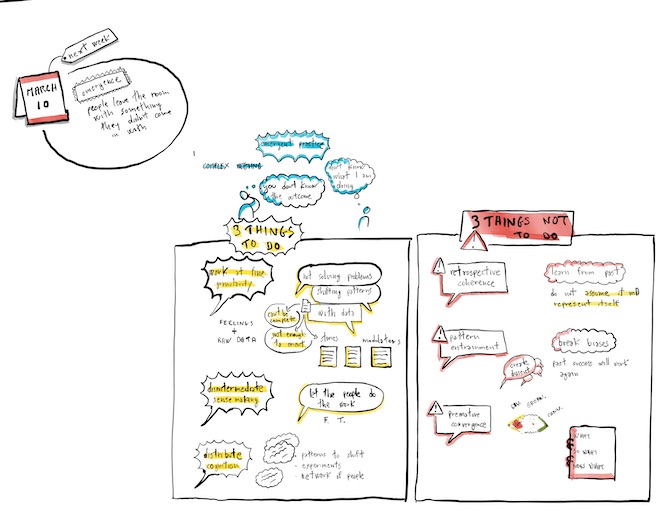 next week
MARCH
10
emergence
people leave the room
with something
they didn't come
in with
emergent practice
COMPLEX
don't know
what I am
doing
you don't know
the outcome
3 THINGS
TO DO
work at fine
granularity
FEELINGS
+
RAW DATA
not solving problems
shifting patterns
with data
can't be
complete
just enough
to
stories
disintermediate
sense making
let the people do
the work
F. T.
distribute
cognition
- patterns to shift
- experiments
- network of people
3 THINGS NOT
TO DO
retrospective
coherence
learn from past
do not assume it
represent itself
pattern
entrainment
break biases
create
past success will work
again
premature
convergence
WHAT
SO WHAT
NOW WHAT